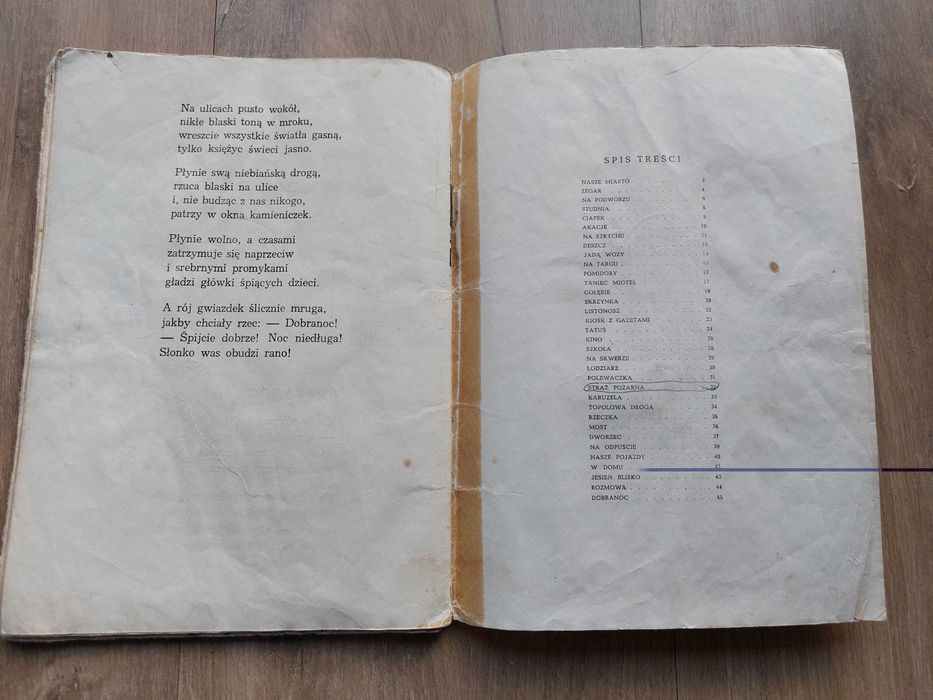 Na ulicach pusto wokół,
nikłe blaski toną w mroku,
wreszcie wszystkie światła gasną,
tylko księżyc świeci jasno.
Płynie swą niebiańską drogą,
rzuca blaski na ulice
i, nie budząc z nas nikogo,
patrzy w okna kamieniczek.
Płynie wolno, a czasami
zatrzymuje się naprzeciw
i srebrnymi promykami
gładzi główki śpiących dzieci.
A rój gwiazdek ślicznie mruga,
jakby chciały rzec: — Dobranoc!
— Śpijcie dobrze! Noc niedługa!
Słonko was obudzi rano!
SPIS TREŚCI
NASZE MIASTO . . . . . . . . . 3
ZEGAR . . . . . . . . . 4
NA PODWÓRZU . . . . . . . . . 6
STUDNIA . . . . . . . . . 8
CIAPEK . . . . . . . . . 9
AKACJE . . . . . . . . . 10
NA STRYCHU . . . . . . . . . 11
DESZCZ . . . . . . . . . 13
JADĄ WOZY . . . . . . . . . 14
NA TARGU . . . . . . . . . 15
POMIDORY . . . . . . . . . 17
TANIEC MIOTEŁ . . . . . . . . . 17
GOŁĘBIE . . . . . . . . . 19
SKRZYNKA . . . . . . . . . 20
LISTONOSZ . . . . . . . . . 21
KIOSK Z GAZETAMI . . . . . . . . . 23
TATUŚ . . . . . . . . . 24
KINO . . . . . . . . . 26
SZKOŁA . . . . . . . . . 28
NA SKWERZE . . . . . . . . . 29
LODZIARZ . . . . . . . . . 30
POLEWACZKA . . . . . . . . . 31
STRAŻ POŻARNA . . . . . . . . . 32
KARUZELA . . . . . . . . . 33
TOPOLOWA DROGA . . . . . . . . . 34
RZECZKA . . . . . . . . . 35
MOST . . . . . . . . . 36
DWORZEC . . . . . . . . . 37
NA ODPUŚCIE . . . . . . . . . 39
NASZE POJAZDY . . . . . . . . . 40
W DOMU . . . . . . . . . 42
JESIEŃ BLISKO . . . . . . . . . 43
ROZMOWA . . . . . . . . . 44
DOBRANOC . . . . . . . . . 45